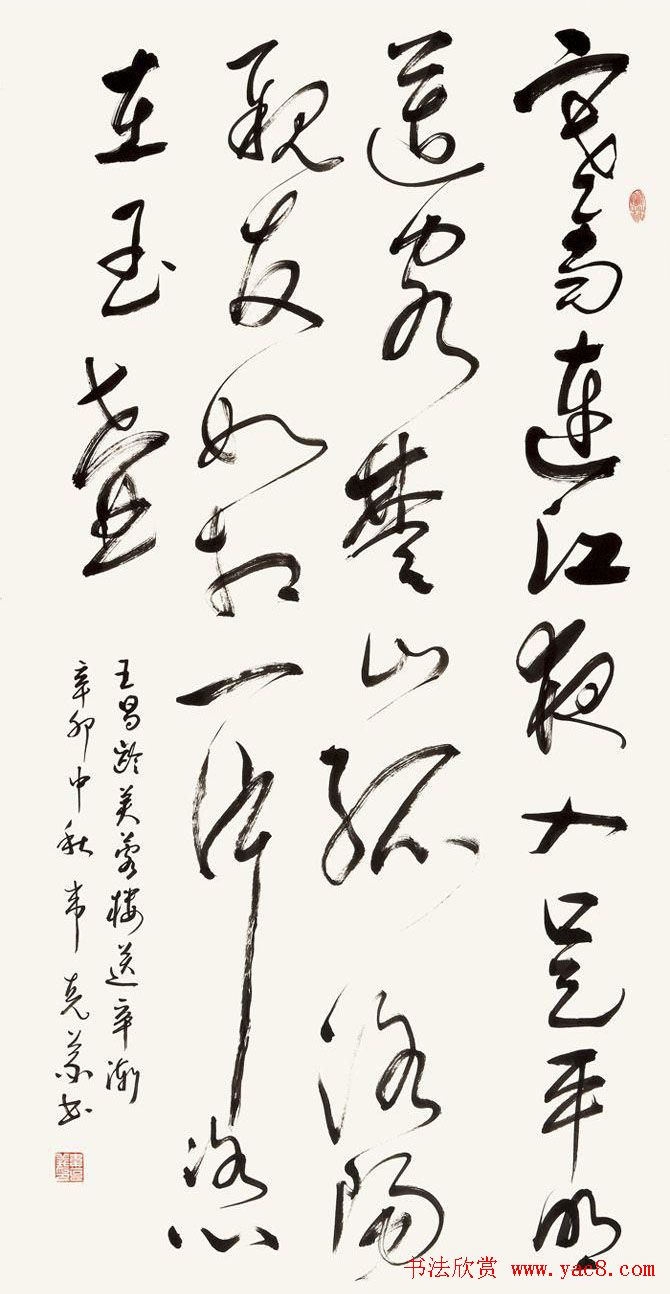 寒雨連江夜入吴平明
送客楚山孤洛陽
親友如相一片冰心
在玉壺
王昌龄芙蓉楼送辛渐
辛卯中秋韦克義书
书法欣赏 www.yac8.com